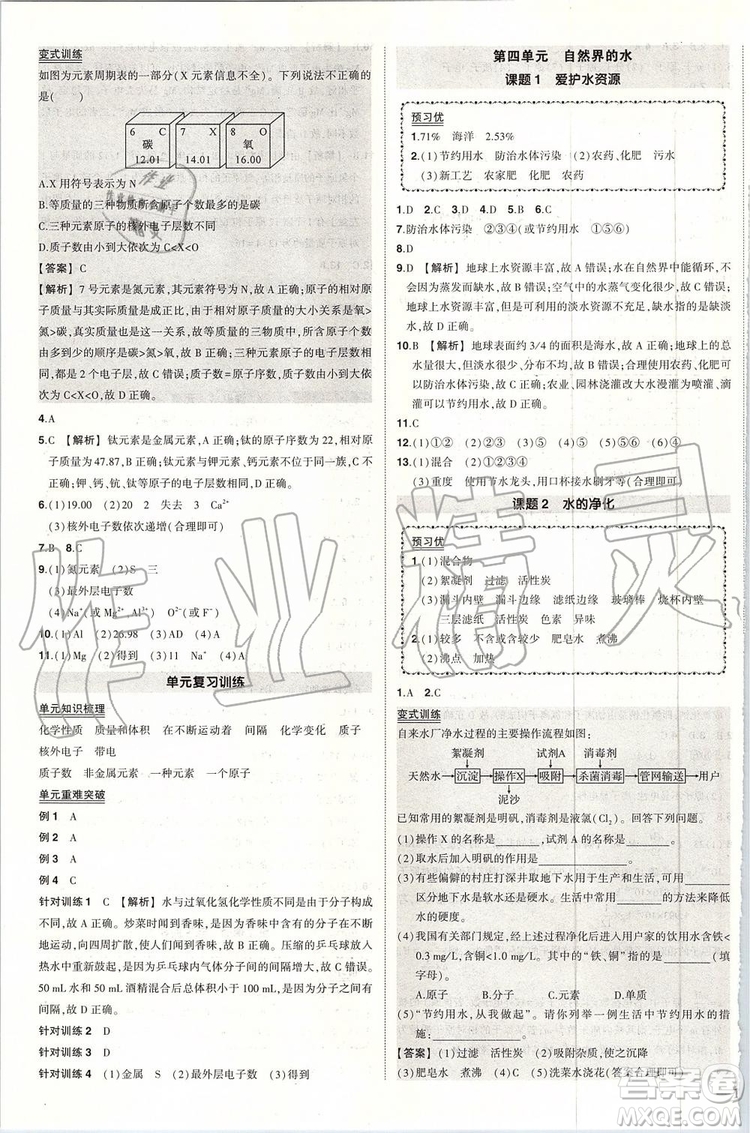 变式训练
如图为元素周期表的一部分(X 元素信息不全)。下列说法不正确的
是(　　)
6 C 碳 12.01
7 X 14.01
8 O 氧 16.00
A.X 用符号表示为 N
B.等质量的三种物质所含原子个数最多的是碳
C.三种元素的核外电子层数不同
D.质子数由小到大依次是 C<X<O
【答案】C
【解析】7 号元素是氮元素,其元素符号为 N,故 A 正确;由于相对原
子质量与其实际质量成正比,相对原子质量由大到小的关系是氧>
氮>碳,故实际质量是氧>氮>碳,故等质量的三物质中,所含原子个数
由多到少的顺序为碳>氮>氧,故 B 正确;由于三原子的电子层数
都是 2 个电子层,故 C 错误;质子数=原子序数,故由小到大依
次为C<X<O,故 D 正确。
4.A
5.C 【解析】钛元素是金属元素,A 正确;钛的原子序数为 22,相对原
子质量为 47.87,B 正确;钛元素与钾元素、钙元素不同类,C 错误;
钙、钪、钛的原子序数依次递增,D 正确。
6.(1)19.00 (2)20 失去 3 Ca²⁺
(3)核外电子数依次递增(合理即可)
7.B 8.C
9.(1)氮元素 (2)S 三
(3)最外层电子数
(4)Na⁺(或 Mg²⁺、Al³⁺、O²⁻或 F⁻)
10.(1)Al (2)26.98 (3)AD (4)AC
11.(1)Mg (2)得到 (3)13 Na⁺
单元复习训练
单元知识梳理
化学性质 质量和体积 在不断运动着 间隔 化学变化 质子
核外电子 带电
质子数 非金属元素 一种元素 一个原子
单元重难突破
例 1 A
例 2 A
例 3 A
例 4 C
针对训练 1 C 【解析】水与过氧化氢化学性质不同与分子构成
不同有关,故 A 正确。炒菜时闻到香味,是因为香味的分子在不断
地运动,向四周扩散,使人闻到香味,故 B 正确。压缩的乒乓球放入
热水中重新鼓起,是因为乒乓球内气体分子的间隔增大,故 C 错误。
50 mL 水和 50 mL 酒精混合后总体积小于 100 mL,是因为分子间有
间隔,故 D 正确。
针对训练 2 D
针对训练 3 D
针对训练 4 (1)金属 S (2)最外层电子数 (3)得到
第四单元 自然界的水
课题 1 爱护水资源
预习优
1.71% 海洋 2.53%
2.(1)节约用水 防治水体污染 (2)农药、化肥 污水
(3)新工艺 农家肥 化肥 农药
1.D 2.C 3.D 4.D 5.D 6.A
7.防治水体污染 ②③④ 节约用水 ①⑤⑥
8.D
9.D 【解析】地球上水资源丰富,故 A 错误;水在自然界中能循环,不
会因为蒸发而缺水,故 B 错误;空气中的水蒸气变化很多,故 C 错
误;地球上水资源丰富,但可利用的淡水资源不充足,故 D 正确。
10.B 【解析】地球表面约 3/4 的面积是海水,故 A 正确;地球上的总
水量很大,但淡水很少、分布不均,故 B 错误;合理使用农药、化肥
可以防治水体污染,故 C 正确;农业、园林浇灌改大水漫灌为喷灌、
滴灌可节约用水,故 D 正确。
11.C
12.(1)①② (2)②④ (3)①②③④
13.(1)混合 (2)①③④
(3)随手关紧水龙头,用口杯接水刷牙等(合理即可)
课题 2 水的净化
预习优
1.(1)混合物
(2)絮凝剂 过滤 活性炭
(3)漏斗内壁 漏斗边缘 滤纸边缘 玻璃棒 烧杯内壁
三层滤纸 活性炭 色素 异味
2.(1)较多 不含或含较少 肥皂水 煮沸
(2)沸点 加热
1.A 2.C
变式训练
自来水厂净水过程的主要操作流程如图:
絮凝剂 试剂A 消毒剂
天然水→沉淀→操作X→吸附→杀菌消毒→管网输送→用户
泥沙
已知常用的絮凝剂是明矾,消毒剂是液氯(Cl₂)。回答下列问题。
(1)操作 X 的名称是________,试剂 A 的名称是________。
(2)取水后加入明矾的作用是________。
(3)有些偏僻的村庄打深井取地下水并直接使用,村民可用________
区分地下水是软水还是硬水。生活中常用________的方法来降低
水的硬度。
(4)我国有关部门规定,经过程净化后进入用户家的饮用水含铁<
0.3 mg/L,含铜<1.0 mg/L。其中的“铁、铜”是指________(填
字母)。
A.原子 B.分子 C.元素 D.单质
(5)“节约用水,从我做起”。请列举一例生活中节约用水的措
施:________。
【答案】(1)过滤 活性炭 (2)吸附杂质,使之沉降
(3)肥皂水 煮沸 (4)C (5)洗菜水浇花(合理即可)
作业精灵
答案圈
MXQE.COM